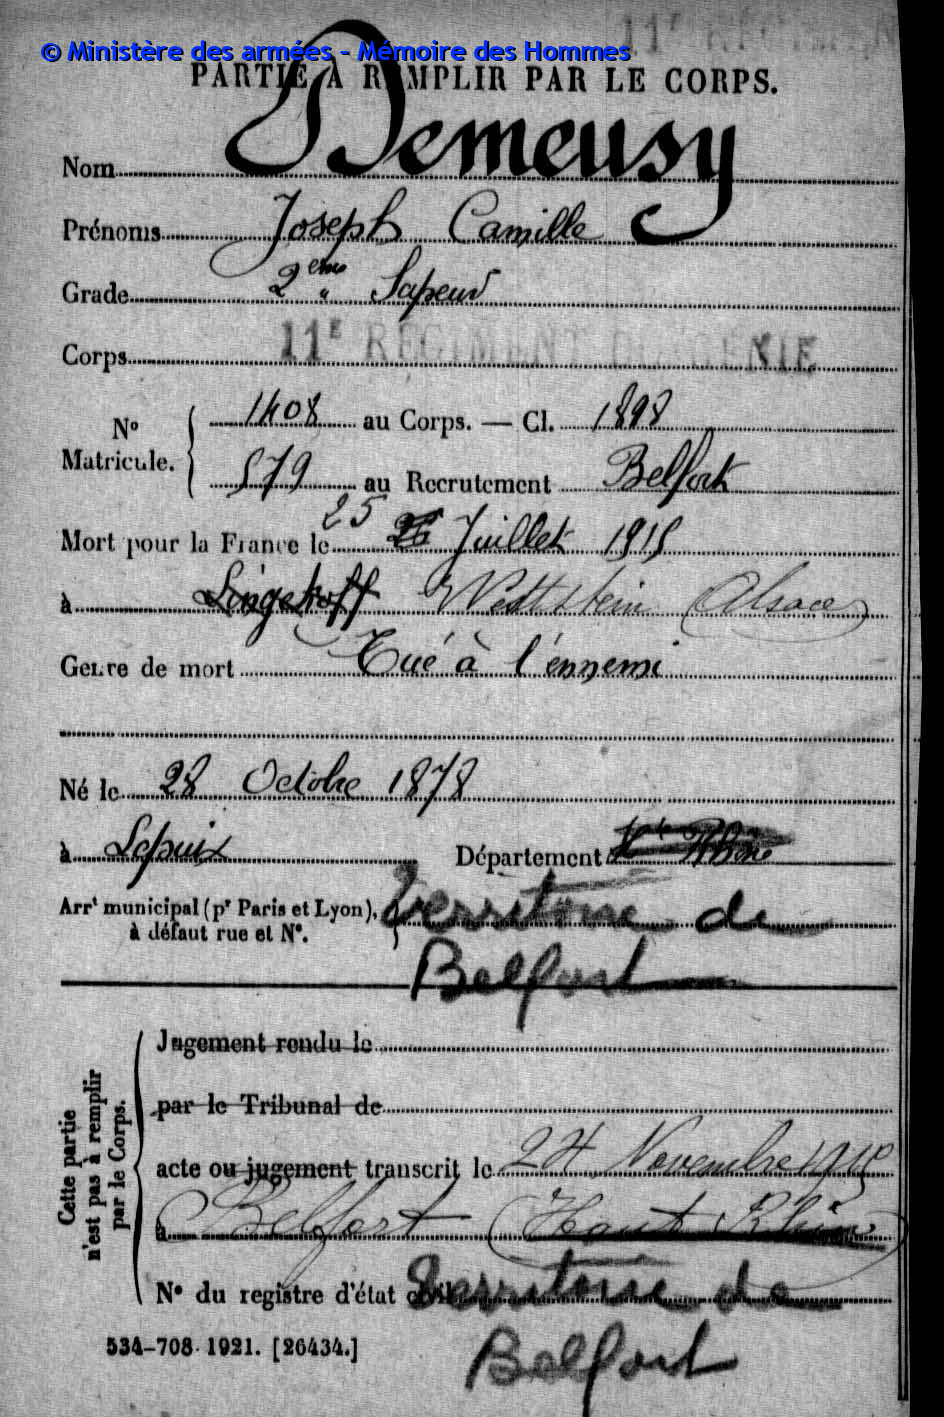 11E RÉGIMEN
© Ministère des armées - Mémoire des Hommes
PARTIE À REMPLIR PAR LE CORPS.
Nom Demeusy
Prénoms Joseph Camille
Grade 2eme " Sapeur
Corps 11E RÉGIMENT DU GÉNIE
No Matricule. 1408 au Corps. — Cl. 1898
579 au Recrutement Belfort
Mort pour la France le 25 26 Juillet 1915
à Lingekopff Wettstein (Alsace)
Genre de mort Tué à l'ennemi
Né le 28 Octobre 1878
à Lepuix Département Ht Rhin
Arrt municipal (pr Paris et Lyon), Territoire de
à défaut rue et No. Belfort
Cette partie n'est pas à remplir par le Corps.
Jugement rendu le
par le Tribunal de
acte ou jugement transcrit le 24 Novembre 1915
à Belfort (Haut Rhin)
No du registre d'état civil Territoire de
Belfort
534-708. 1921. [26434.]